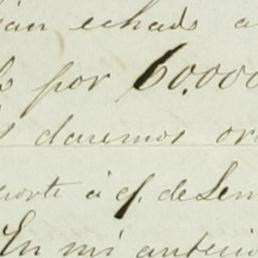 ian echado a
s por 60.000
daremos or
porte á cf. de Lem
En mi anterio